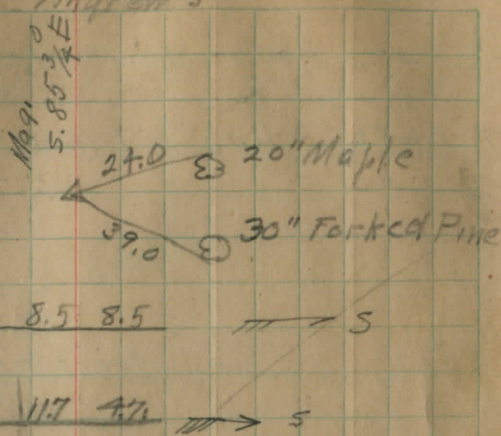 Mag.
S.85¾°E
24.0 20" Maple
39.0 30" Forked Pine
8.5 8.5 S
11.7 4.7 S